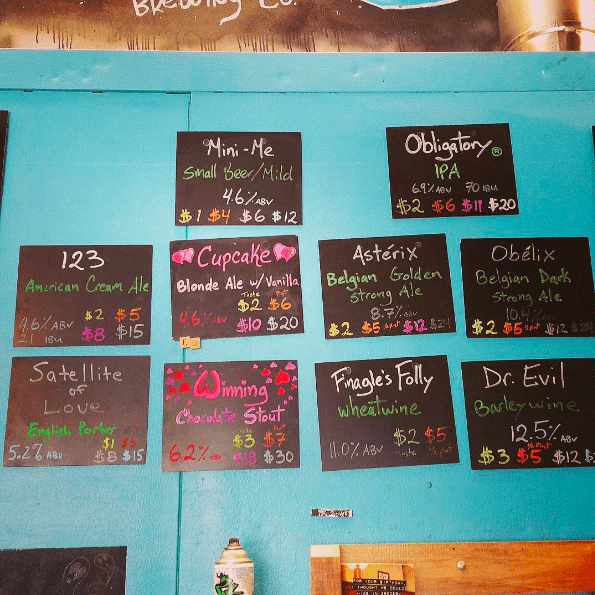 Brewing Co.
Mini-Me
Small Beer/Mild
4.6% ABV
$1 $4 $6 $12
Obligatory ®
IPA
6.9% ABV 70 IBU
$2 $6 $11 $20
123
American Cream Ale
$2 $5
4.6% ABV
21 IBU $8 $15
Cupcake
Blonde Ale w/Vanilla
Taste Pint
$2 $6
4.6% ABV
$10 $20
Astérix
Belgian Golden
Strong Ale
8.7% ABV
$2 $5 $12 $24
Obélix
Belgian Dark
Strong Ale
10.4% ABV
$2 $5 $12 $24
Satellite
of
Love
English Porter
$1 $5
5.2% ABV $8 $15
Winning
Chocolate Stout
Pint
$3 $7
6.2% ABV $18 $30
Finagle's Folly
wheatwine
$2 $5
11.0% ABV taste ½ pint
Dr. Evil
Barleywine
12.5% ABV
½ Pint
$3 $5 $12
FOR YOUR BIRTHDAY,
I THOUGHT WE COULD